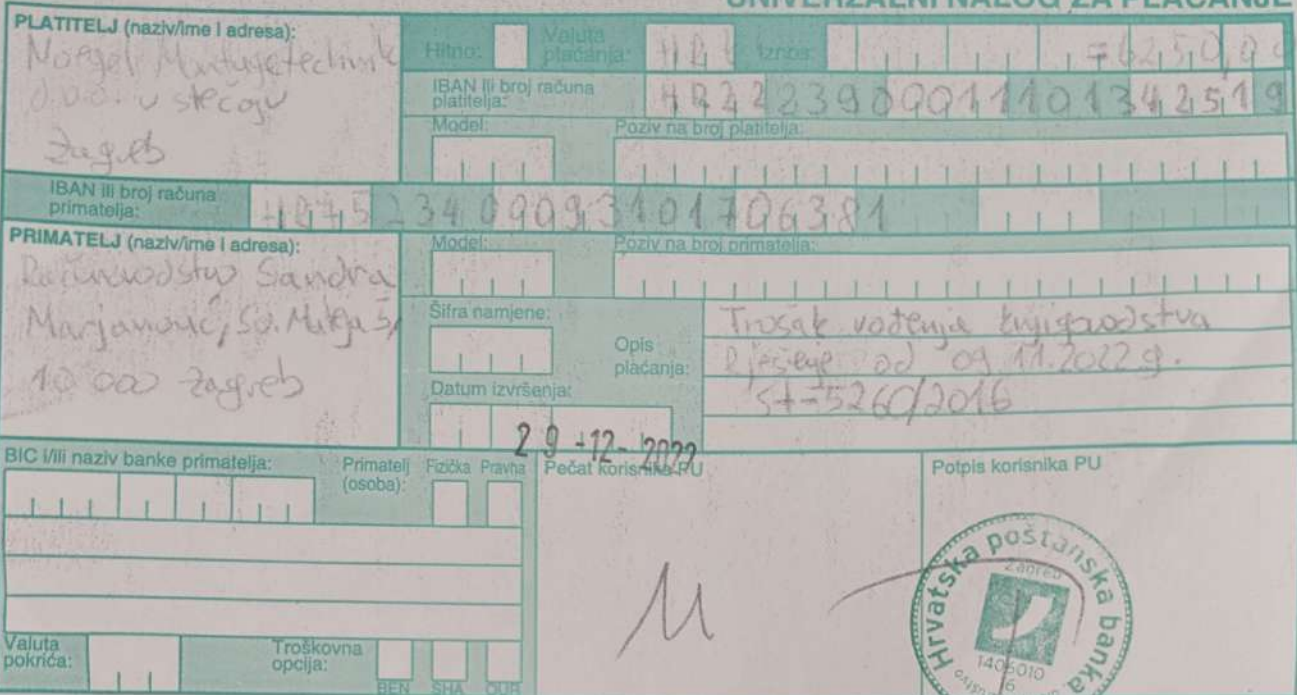 UNIVERZALNI NALOG ZA PLAĆANJE
PLATITELJ (naziv/ime i adresa):
d.o.o. u stečaju
Zagreb
Hitno:
Valuta plaćanja: HRK
Iznos: =6250,00
IBAN ili broj računa platitelja: HR2223900011101342519
Model:
Poziv na broj platitelja:
IBAN ili broj računa primatelja: HR7523400093101706381
PRIMATELJ (naziv/ime i adresa):
Računovodstvo Sandra
Marjanović, Sv. Mateja
10 000 Zagreb
Model:
Poziv na broj primatelja:
Šifra namjene:
Opis plaćanja:
Trošak vođenja knjigovodstva
Rješenje od 09.11.2022.g.
St-5260/2016
Datum izvršenja:
29-12-2022
BIC i/ili naziv banke primatelja:
Primatelj (osoba):
Fizička
Pravna
Pečat korisnika PU
Potpis korisnika PU
Hrvatska poštanska banka
Zagreb
1406010
6
Valuta pokrića:
Troškovna opcija:
BEN
SHA
OUR